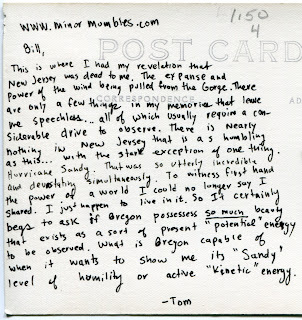 www.minormumbles.com
1/50
4
POST CARD
CORRESPONDENCE
Bill,
This is where I had my revelation that
New Jersey was dead to me. The expanse and
power of the wind being pulled from the Gorge. There
are only a few things in my memories that leave
me speechless... all of which usually require a con-
siderable drive to observe. There is nearly
nothing in New Jersey that is as humbling
as this... with the stark exception of one thing.
Hurricane Sandy. That was so utterly incredible
and devastating simultaneously. To witness first hand
the power of a world I could no longer say I
shared. I just happen to live in it. So it certainly
begs to ask if Oregon possesses so much beauty
that exists as a sort of present "potential" energy
to be observed. What is Oregon capable of
when it wants to show me its "Sandy"
level of humility or active "Kinetic" energy.
-Tom